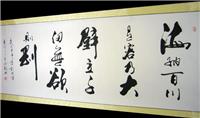 海納百川
有容乃大
壁立千
仞無欲
則剛